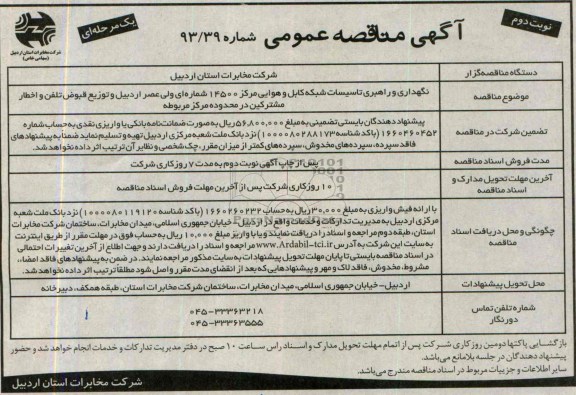 نوبت دوم
آگهی مناقصه عمومی شماره ۹۳/۳۹
یک مرحله‌ای
شرکت مخابرات استان اردبیل
(سهامی خاص)
دستگاه مناقصه‌گزار
شرکت مخابرات استان اردبیل
موضوع مناقصه
نگهداری و راهبری تاسیسات شبکه کابل و هوایی مرکز ۱۴۵۰۰ شماره‌ای ولی عصر اردبیل و توزیع قبوض تلفن و اخطار
مشترکین در محدوده مرکز مربوطه
تضمین شرکت در مناقصه
پیشنهاد دهندگان بایستی تضمینی به مبلغ ۵۶,۸۰۰,۰۰۰ ریال به صورت ضمانت‌نامه بانکی یا واریزی نقدی به حساب شماره
۱۶۶۰۴۶۰۴۵۲ (با کد شناسه ۱۰۰۰۰۰۸۰۲۸۸۱۷۳) نزد بانک ملت شعبه مرکزی اردبیل تهیه و تسلیم نماید ضمنا به پیشنهادهای
فاقد سپرده، سپرده‌های مخدوش، سپرده‌های کمتر از میزان مقرر، چک شخصی و نظایر آن ترتیب اثر داده نخواهد شد.
مدت فروش اسناد مناقصه
پس از چاپ آگهی نوبت دوم به مدت ۷ روز کاری شرکت
آخرین مهلت تحویل مدارک و
اسناد مناقصه
۱۰ روز کاری شرکت پس از آخرین مهلت فروش اسناد مناقصه
چگونگی و محل دریافت اسناد
مناقصه
با ارائه فیش واریزی به مبلغ ۳۰,۰۰۰ ریال به حساب ۱۶۶۰۲۶۰۲۳۲ (با کد شناسه ۱۰۰۰۰۰۸۰۱۱۹۱۲۰) نزد بانک ملت شعبه
مرکزی اردبیل به مدیریت تدارکات و خدمات واقع در اردبیل، خیابان جمهوری اسلامی، میدان مخابرات، ساختمان شرکت مخابرات
استان، طبقه دوم مراجعه و اسناد را دریافت نمایند و یا با واریز مبلغ ۱۰,۰۰۰ ریال به حساب فوق در مهلت مقرر از طریق اینترنت
به سایت این شرکت به آدرس www.Ardabil-tci.ir مراجعه و اسناد را دریافت دارند و جهت اطلاع از آخرین تغییرات احتمالی
در اسناد مناقصه بایستی تا پایان مهلت تحویل پیشنهادات به سایت مذکور مراجعه نمایند. در ضمن به پیشنهادهای فاقد امضاء،
مشروط، مخدوش، فاقد لاک و مهر و پیشنهادهایی که بعد از انقضای مدت مقرر واصل شود مطلقا ترتیب اثر داده نخواهد شد.
محل تحویل پیشنهادات
اردبیل - خیابان جمهوری اسلامی، میدان مخابرات، ساختمان شرکت مخابرات استان، طبقه همکف، دبیرخانه
شماره تلفن تماس
۰۴۵-۳۳۳۶۳۲۱۸
دورنگار
۰۴۵-۳۳۳۶۳۵۵۵
بازگشایی پاکتها دومین روز کاری شرکت پس از اتمام مهلت تحویل مدارک و اسناد راس ساعت ۱۰ صبح در دفتر مدیریت تدارکات و خدمات انجام خواهد شد و حضور
پیشنهاد دهندگان در جلسه بلامانع می‌باشد.
سایر اطلاعات و جزییات مربوط در اسناد مناقصه مندرج می‌باشد.
شرکت مخابرات استان اردبیل